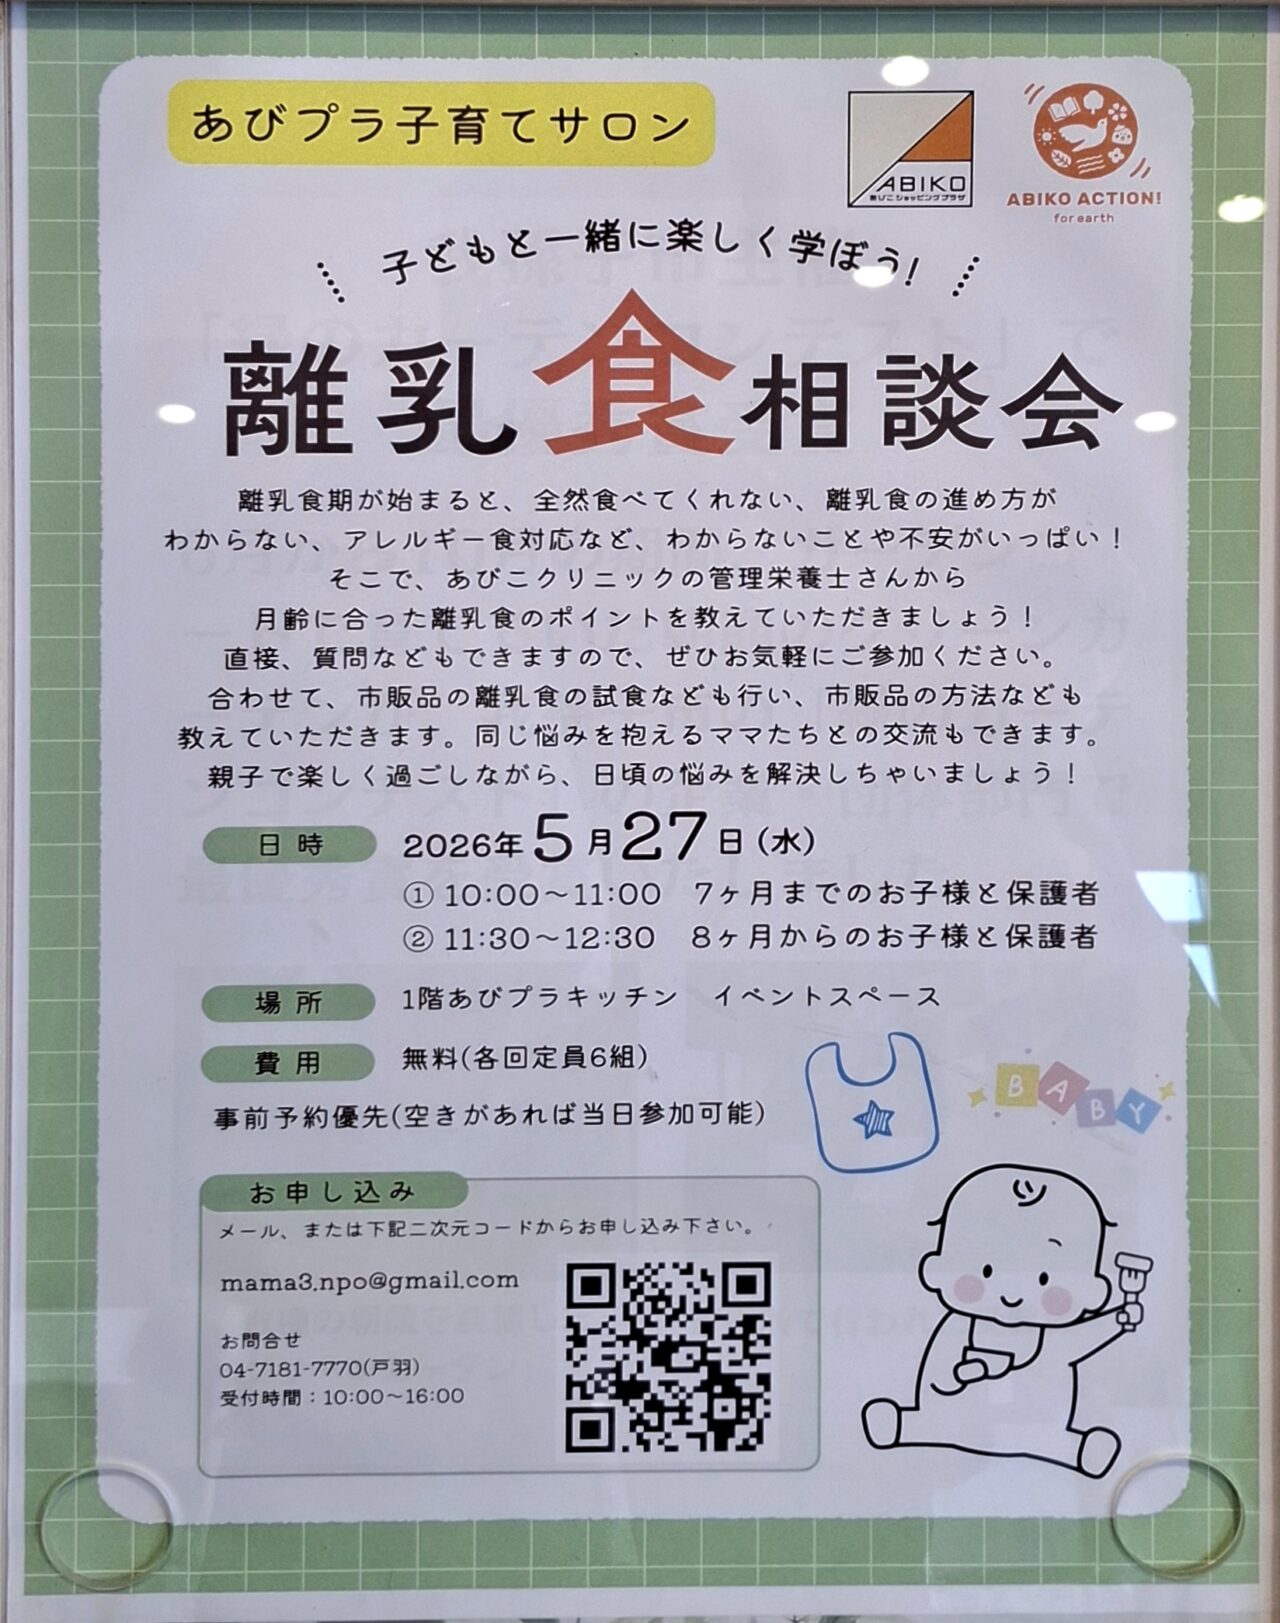 あびプラ子育てサロン
ABIKO
あびこショッピングプラザ
ABIKO ACTION!
for earth
子どもと一緒に楽しく学ぼう!
離乳食相談会
離乳食期が始まると、全然食べてくれない、離乳食の進め方が
わからない、アレルギー食対応など、わからないことや不安がいっぱい！
そこで、あびこクリニックの管理栄養士さんから
月齢に合った離乳食のポイントを教えていただきましょう！
直接、質問などもできますので、ぜひお気軽にご参加ください。
合わせて、市販品の離乳食の試食なども行い、市販品の方法なども
教えていただきます。同じ悩みを抱えるママたちとの交流もできます。
親子で楽しく過ごしながら、日頃の悩みを解決しちゃいましょう！
日時 2026年5月27日(水)
① 10:00～11:00 7ヶ月までのお子様と保護者
② 11:30～12:30 8ヶ月からのお子様と保護者
場所 1階あびプラキッチン イベントスペース
費用 無料(各回定員6組)
事前予約優先(空きがあれば当日参加可能)
BABY
お申し込み
メール、または下記二次元コードからお申し込み下さい。
mama3.npo@gmail.com
お問合せ
04-7181-7770(戸羽)
受付時間：10:00～16:00